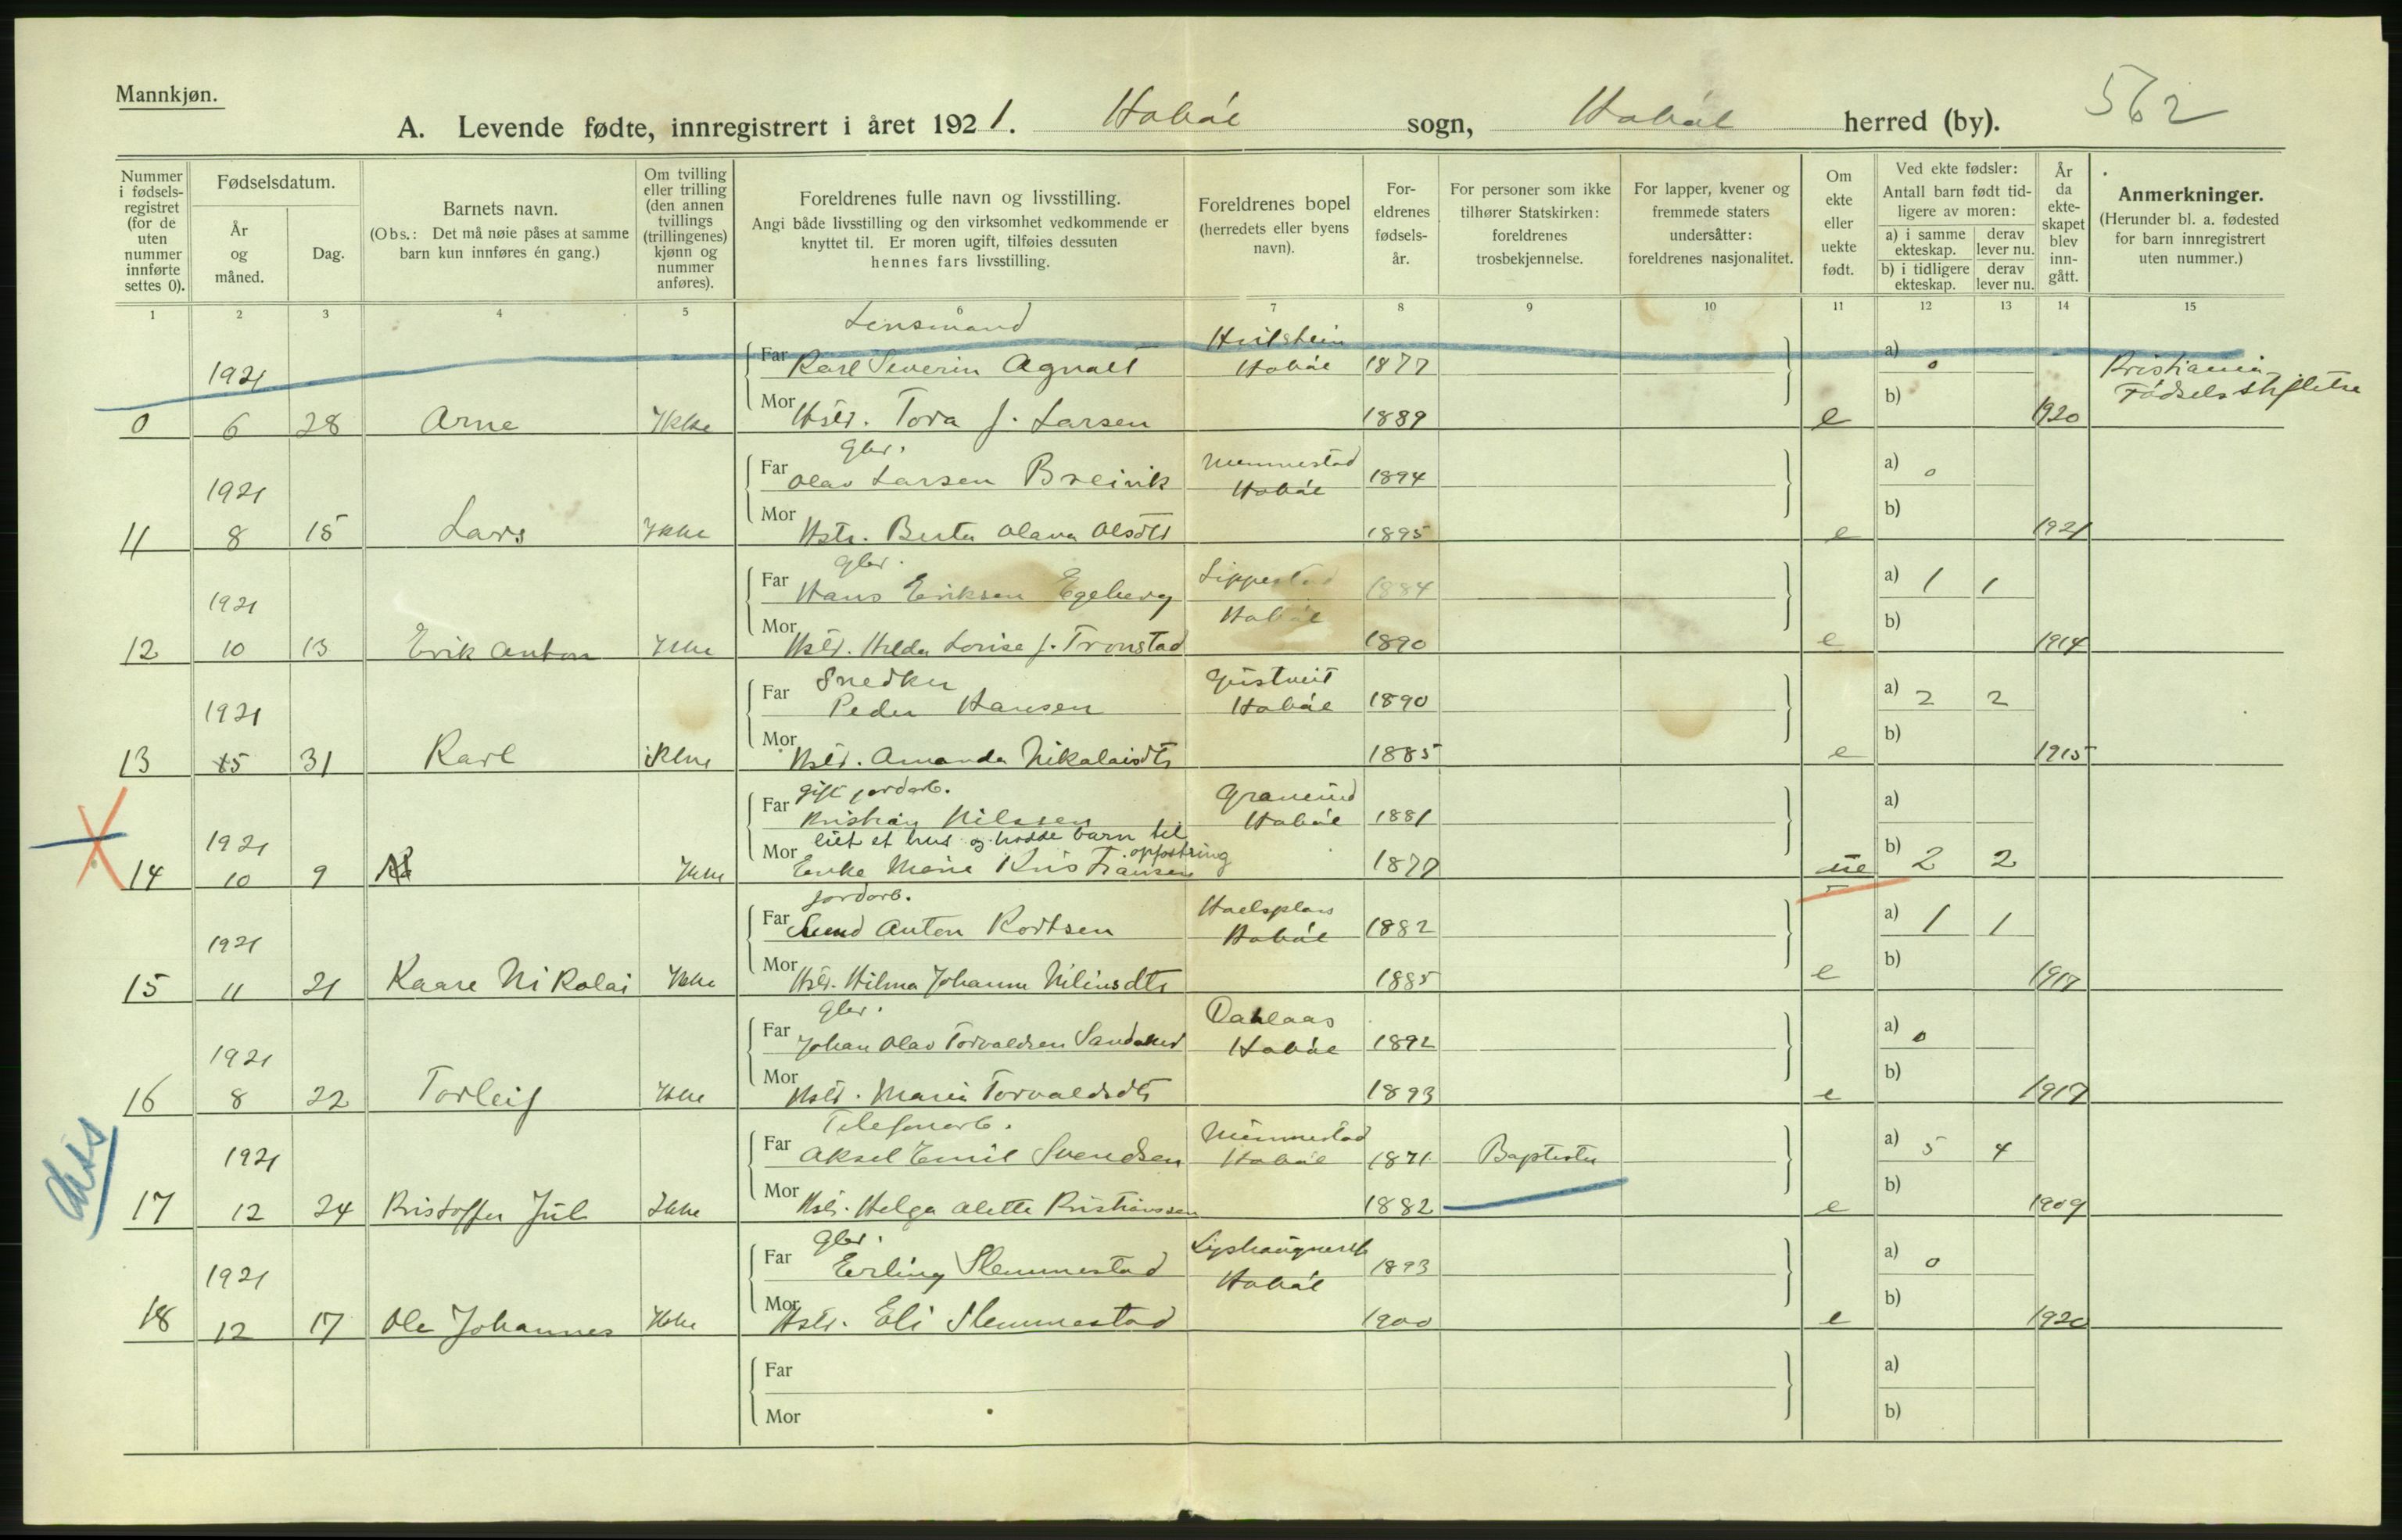 Mannkjøn.
A. Levende fødte, innregistrert i året 1921. Hobøl sogn, Hobøl herred (by). 562
Nummer i fødselsregistret (for de uten nummer innførte settes 0).
Fødselsdatum.
År og måned.
Dag.
Barnets navn.
(Obs.: Det må nøie påses at samme barn kun innføres én gang.)
Om tvilling eller trilling (den annen tvillings (trillingenes) kjønn og nummer anføres).
Foreldrenes fulle navn og livsstilling.
Angi både livsstilling og den virksomhet vedkommende er knyttet til. Er moren ugift, tilføies dessuten hennes fars livsstilling.
Foreldrenes bopel (herredets eller byens navn).
Foreldrenes fødselsår.
For personer som ikke tilhører Statskirken: foreldrenes trosbekjennelse.
For lapper, kvener og fremmede staters undersåtter: foreldrenes nasjonalitet.
Om ekte eller uekte født.
Ved ekte fødsler: Antall barn født tidligere av moren:
a) i samme ekteskap. derav lever nu.
b) i tidligere ekteskap. derav lever nu.
År da ekteskapet blev inngått.
Anmerkninger.
(Herunder bl. a. fødested for barn innregistrert uten nummer.)
1 2 3 4 5 6 7 8 9 10 11 12 13 14 15
Lensmand
1921 Far Karl Severin Agnalt Hobøl 1877 a) 0 Kristiania
Fødselsstiftelse
0 6 28 Arne Ikke Mor Hstr. Tora f. Larsen 1889 e b) 1920
Gbr.
1921 Far Olav Larsen Breivik Hobøl 1894 a) 0
11 8 15 Lars Ikke Mor Hstr. Berta Olava Olsdtr 1895 e b) 1921
Gbr.
1921 Far Hans Eriksen Egeberg Hobøl 1884 a) 1 1
12 10 13 Erik Anton Ikke Mor Hstr. Hilda Lovise f. Tronstad 1890 e b) 1914
Snedker
1921 Far Peder Hansen Hobøl 1890 a) 2 2
13 5 31 Karl ikke Mor Hstr. Amanda Nikolaisdtr 1885 e b) 1915
gift jordarb.
1921 Far Kristian Nilssen Hobøl 1881 a)
liet et hus og hadde barn til opfostring
14 10 9 Ikke Mor Enke Marie Kristiansen 1877 ue b) 2 2
Jordarb.
1921 Far Anton Kortsen Hobøl 1882 a) 1 1
15 11 21 Kaare Nikolai Ikke Mor Hstr. Hilma Johanne Niliusdtr 1885 e b) 1917
Gbr.
1921 Far Johan Olav Torvaldsen Dahlaas Hobøl 1892 a) 0
16 8 22 Torleif Ikke Mor Hstr. Marie Torvaldsdtr 1893 e b) 1917
Telefonarb.
1921 Far Aksel Emil Svendsen Hobøl 1871 Baptister a) 5 4
17 12 24 Kristoffer Jul Ikke Mor Hstr. Helga Alette Kristianssen 1882 e b) 1909
Gbr.
1921 Far Erling Slemmestad Hobøl 1893 a) 0
18 12 17 Ole Johannes Ikke Mor Hstr. Eli Slemmestad 1900 e b) 1920
Far a)
Mor b)